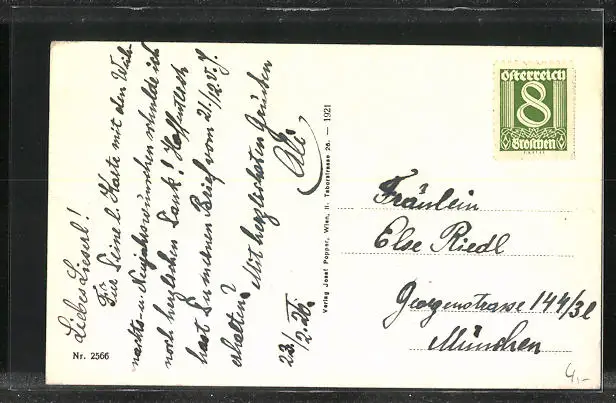 Liebes Lieserl!
Für Deine l. Karte mit den Weih-
nachts- u. Neujahrswünschen schulde ich
noch herzlichen Dank! Hoffentlich
hast Du meinen Brief vom 21./12. v. J.
erhalten?
Mit herzlichsten Grüßen
23./2.26.
Nr. 2566
Verlag Josef Popper, Wien, II. Taborstrasse 26. — 1921
Österreich
8
Groschen
Fräulein
Else Riedl
Georgenstrasse 144/3l
München
4,-